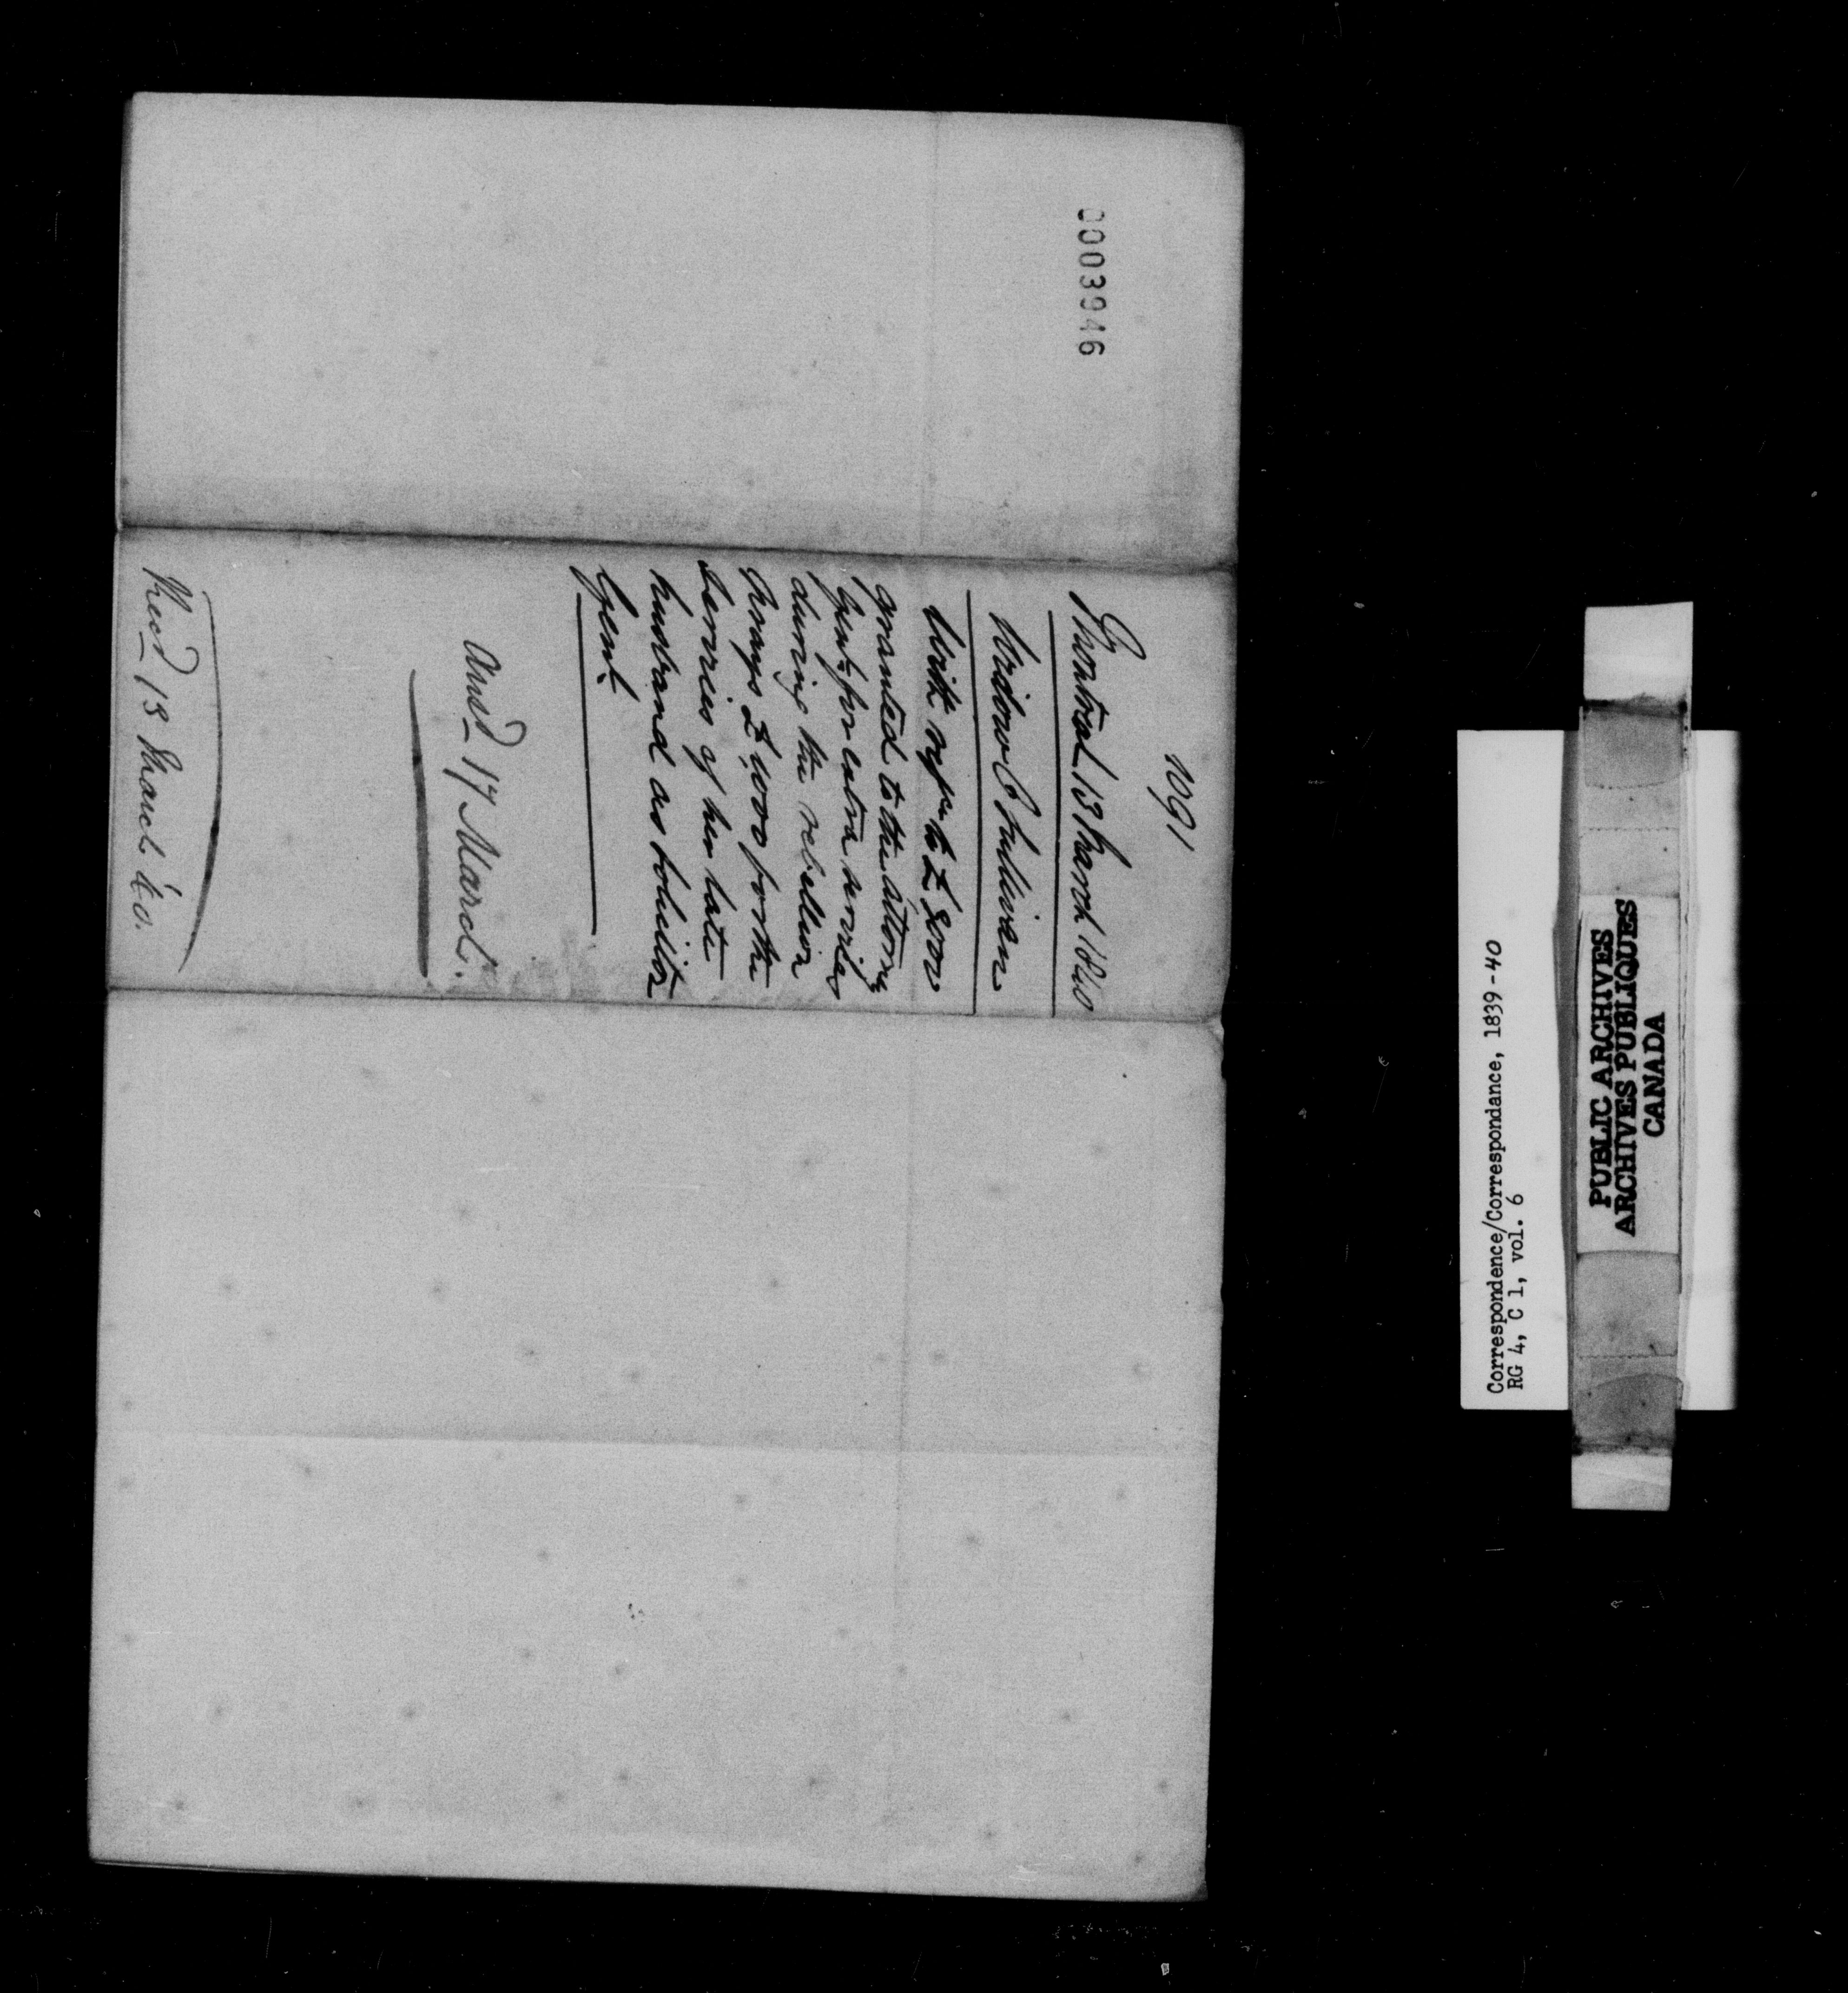 0003946
1091
Montreal 13 March 1840
Widow O'Sullivan
With refce to £2000
granted to the Attorny
Genl: for extra services
during the rebellion
Prays £1000 for the
Services of her late
husband as Solicitor
Genl.
Ansd 17 March.
Recd 13 March 40.
Correspondence/Correspondance, 1839-40
RG 4, C 1, vol. 6
PUBLIC ARCHIVES
ARCHIVES PUBLIQUES
CANADA